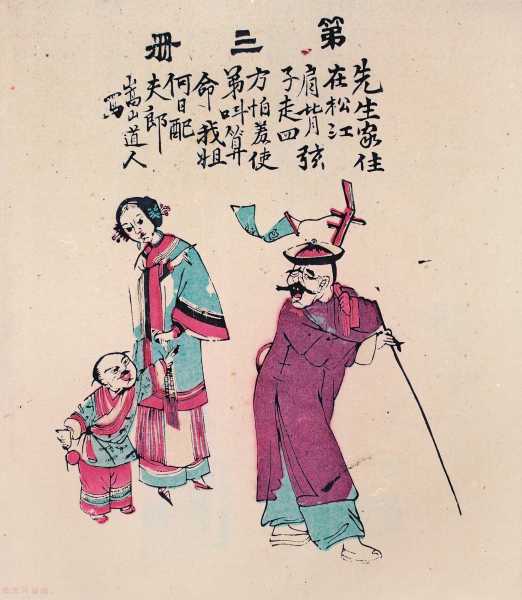 第三册
先生家住
在松江
肩背弦
子走四
方怕羞使
弟叫算
命我姐
何日配
夫郎
嵩山道人
写